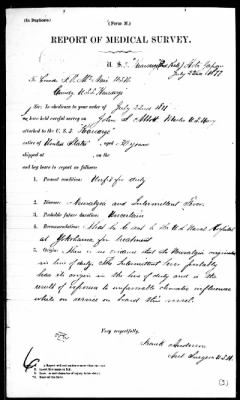 (In Duplicate.)
(Form K.)
REPORT OF MEDICAL SURVEY.
U. S. S. "Kearsarge" (3rd Rate) Kobe Japan
July 22nd 1877
To Comdr. F. V. McNair U.S.N.
Comdg U.S.S. Kearsarge
Sir: In obedience to your order of July 22nd 1877
we have held careful survey on John S. Abbott U.S. Navy
attached to the U. S. S. "Kearsarge"
of United States, aged 30 years
shipped at , on the
and beg leave to report as follows:
1. Present condition: Unfit for duty
2. Disease: Neuralgia and Intermittent Fever.
3. Probable future duration: Uncertain
4. Recommendation: That he be sent to the U.S. Naval Hospital
at Yokohama for treatment
5. Origin: There is no evidence that the Neuralgia originated
in line of duty. The Intermittent Fever probably
has its origin in the line of duty and is the
result of exposure to unfavorable climatic influences
while on service on board this vessel.
Very respectfully,
Frank Anderson
Asst Surgeon U.S.N.
(3)